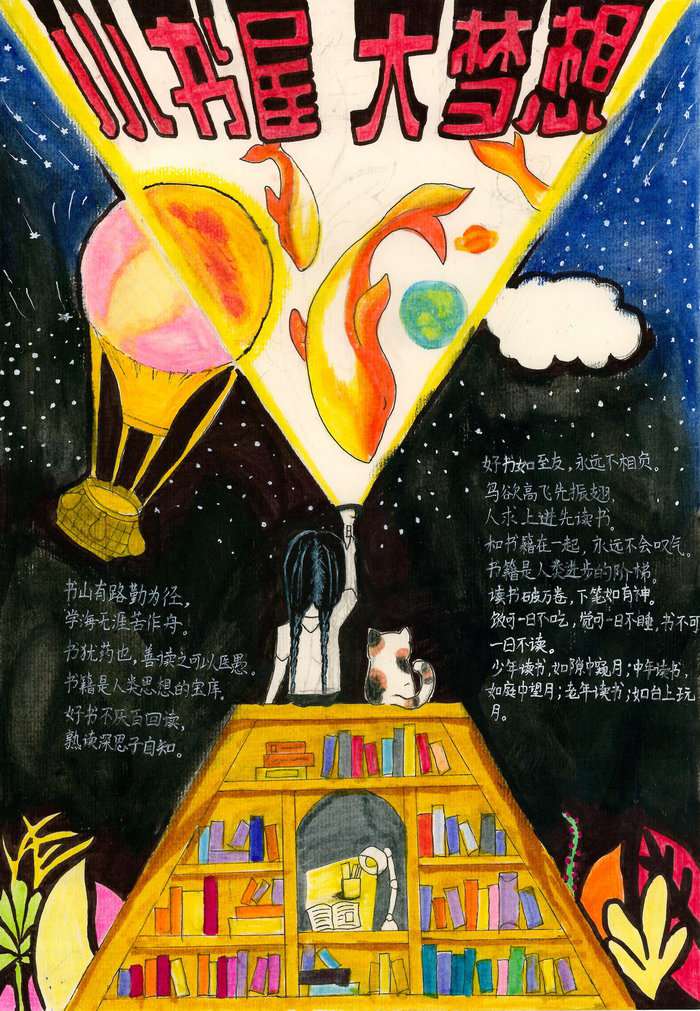 小书屋 大梦想
好书如至友，永远不相负。
鸟欲高飞先振翅，
人求上进先读书。
和书籍在一起，永远不会叹气。
书籍是人类进步的阶梯。
读书破万卷，下笔如有神。
饭可一日不吃，觉可一日不睡，书不可
一日不读。
少年读书，如隙中窥月；中年读书，
如庭中望月；老年读书，如台上玩
月。
书山有路勤为径，
学海无涯苦作舟。
书犹药也，善读之可以医愚。
书籍是人类思想的宝库。
好书不厌百回读，
熟读深思子自知。